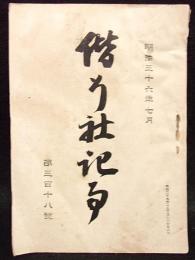 明治三十六年七月
偕行社記事
第三百十八號